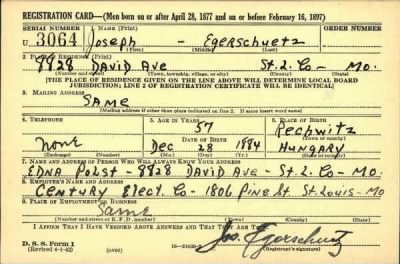 REGISTRATION CARD—(Men born on or after April 28, 1877 and on or before February 16, 1897)
SERIAL NUMBER 1. NAME (Print) ORDER NUMBER
U 3064 Joseph - Egerschuetz
(First) (Middle) (Last)
2. PLACE OF RESIDENCE (Print)
8828 DAVID AVE St. L. Co - Mo.
(Number and street) (Town, township, village, or city) (County) (State)
[THE PLACE OF RESIDENCE GIVEN ON THE LINE ABOVE WILL DETERMINE LOCAL BOARD
JURISDICTION; LINE 2 OF REGISTRATION CERTIFICATE WILL BE IDENTICAL]
3. MAILING ADDRESS
SAME
(Mailing address if other than place indicated on line 2. If same insert word same)
4. TELEPHONE 5. AGE IN YEARS 6. PLACE OF BIRTH
57 Rechwitz
none DATE OF BIRTH (Town or county)
Dec 28 1884 HUNGARY
(Exchange) (Number) (Mo.) (Day) (Yr.) (State or country)
7. NAME AND ADDRESS OF PERSON WHO WILL ALWAYS KNOW YOUR ADDRESS
EDNA POLST - 8828 DAVID AVE - St. L. Co - Mo.
8. EMPLOYER'S NAME AND ADDRESS
CENTURY Elect. Co - 1806 Pine St. St Louis - Mo
9. PLACE OF EMPLOYMENT OR BUSINESS
Same
(Number and street or R. F. D. number) (Town) (County) (State)
I AFFIRM THAT I HAVE VERIFIED ABOVE ANSWERS AND THAT THEY ARE TRUE.
D. S. S. Form 1
(Revised 4-1-42) (over) Jos. Egerschuetz
(Registrant's signature)